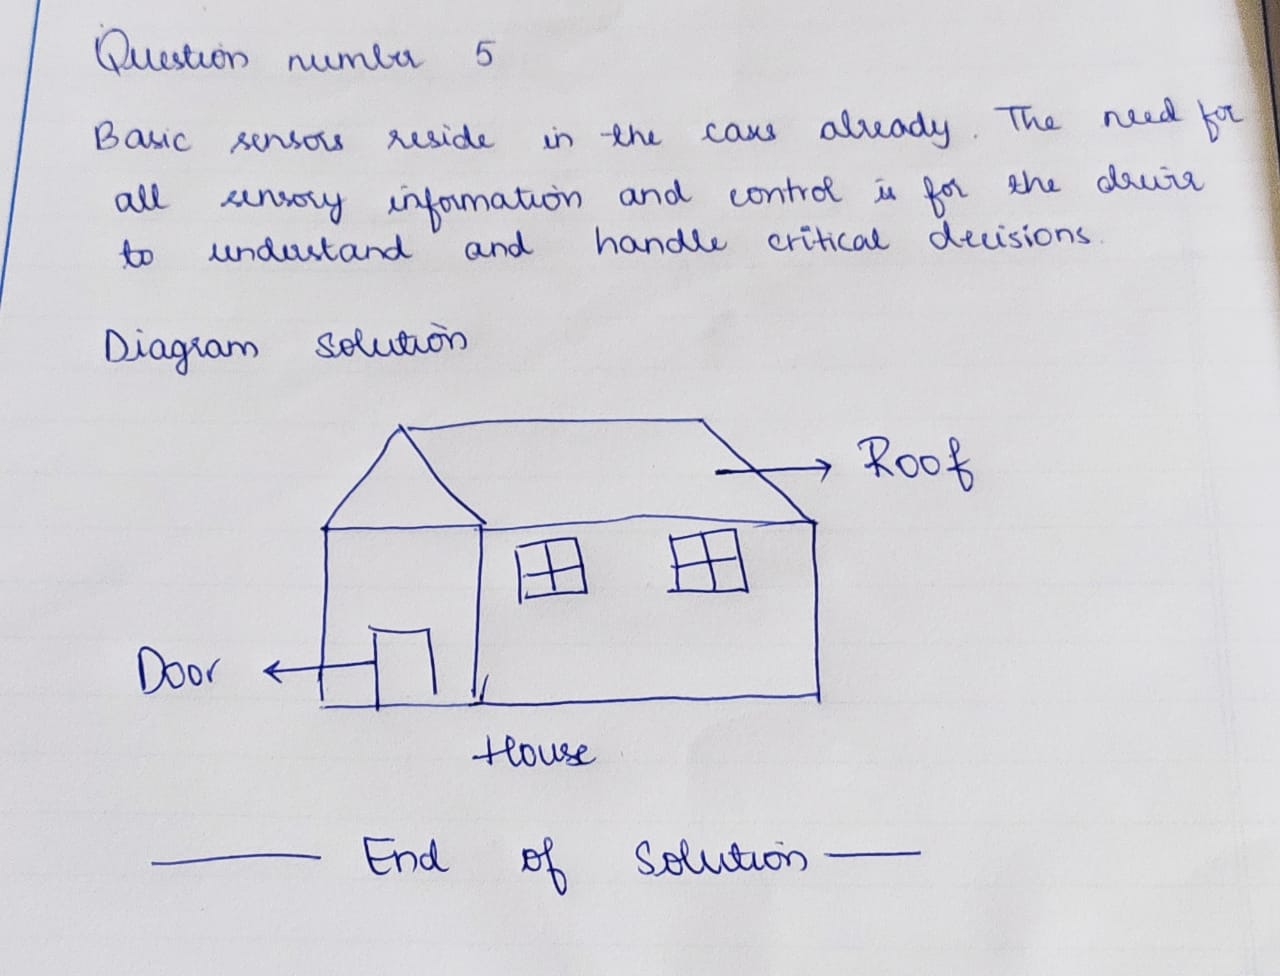 Question number 5
Basic sensors reside in the cars already. The need for
all sensory information and control is for the driver
to understand and handle critical decisions.
Diagram solution
Roof
Door
House
End of solution